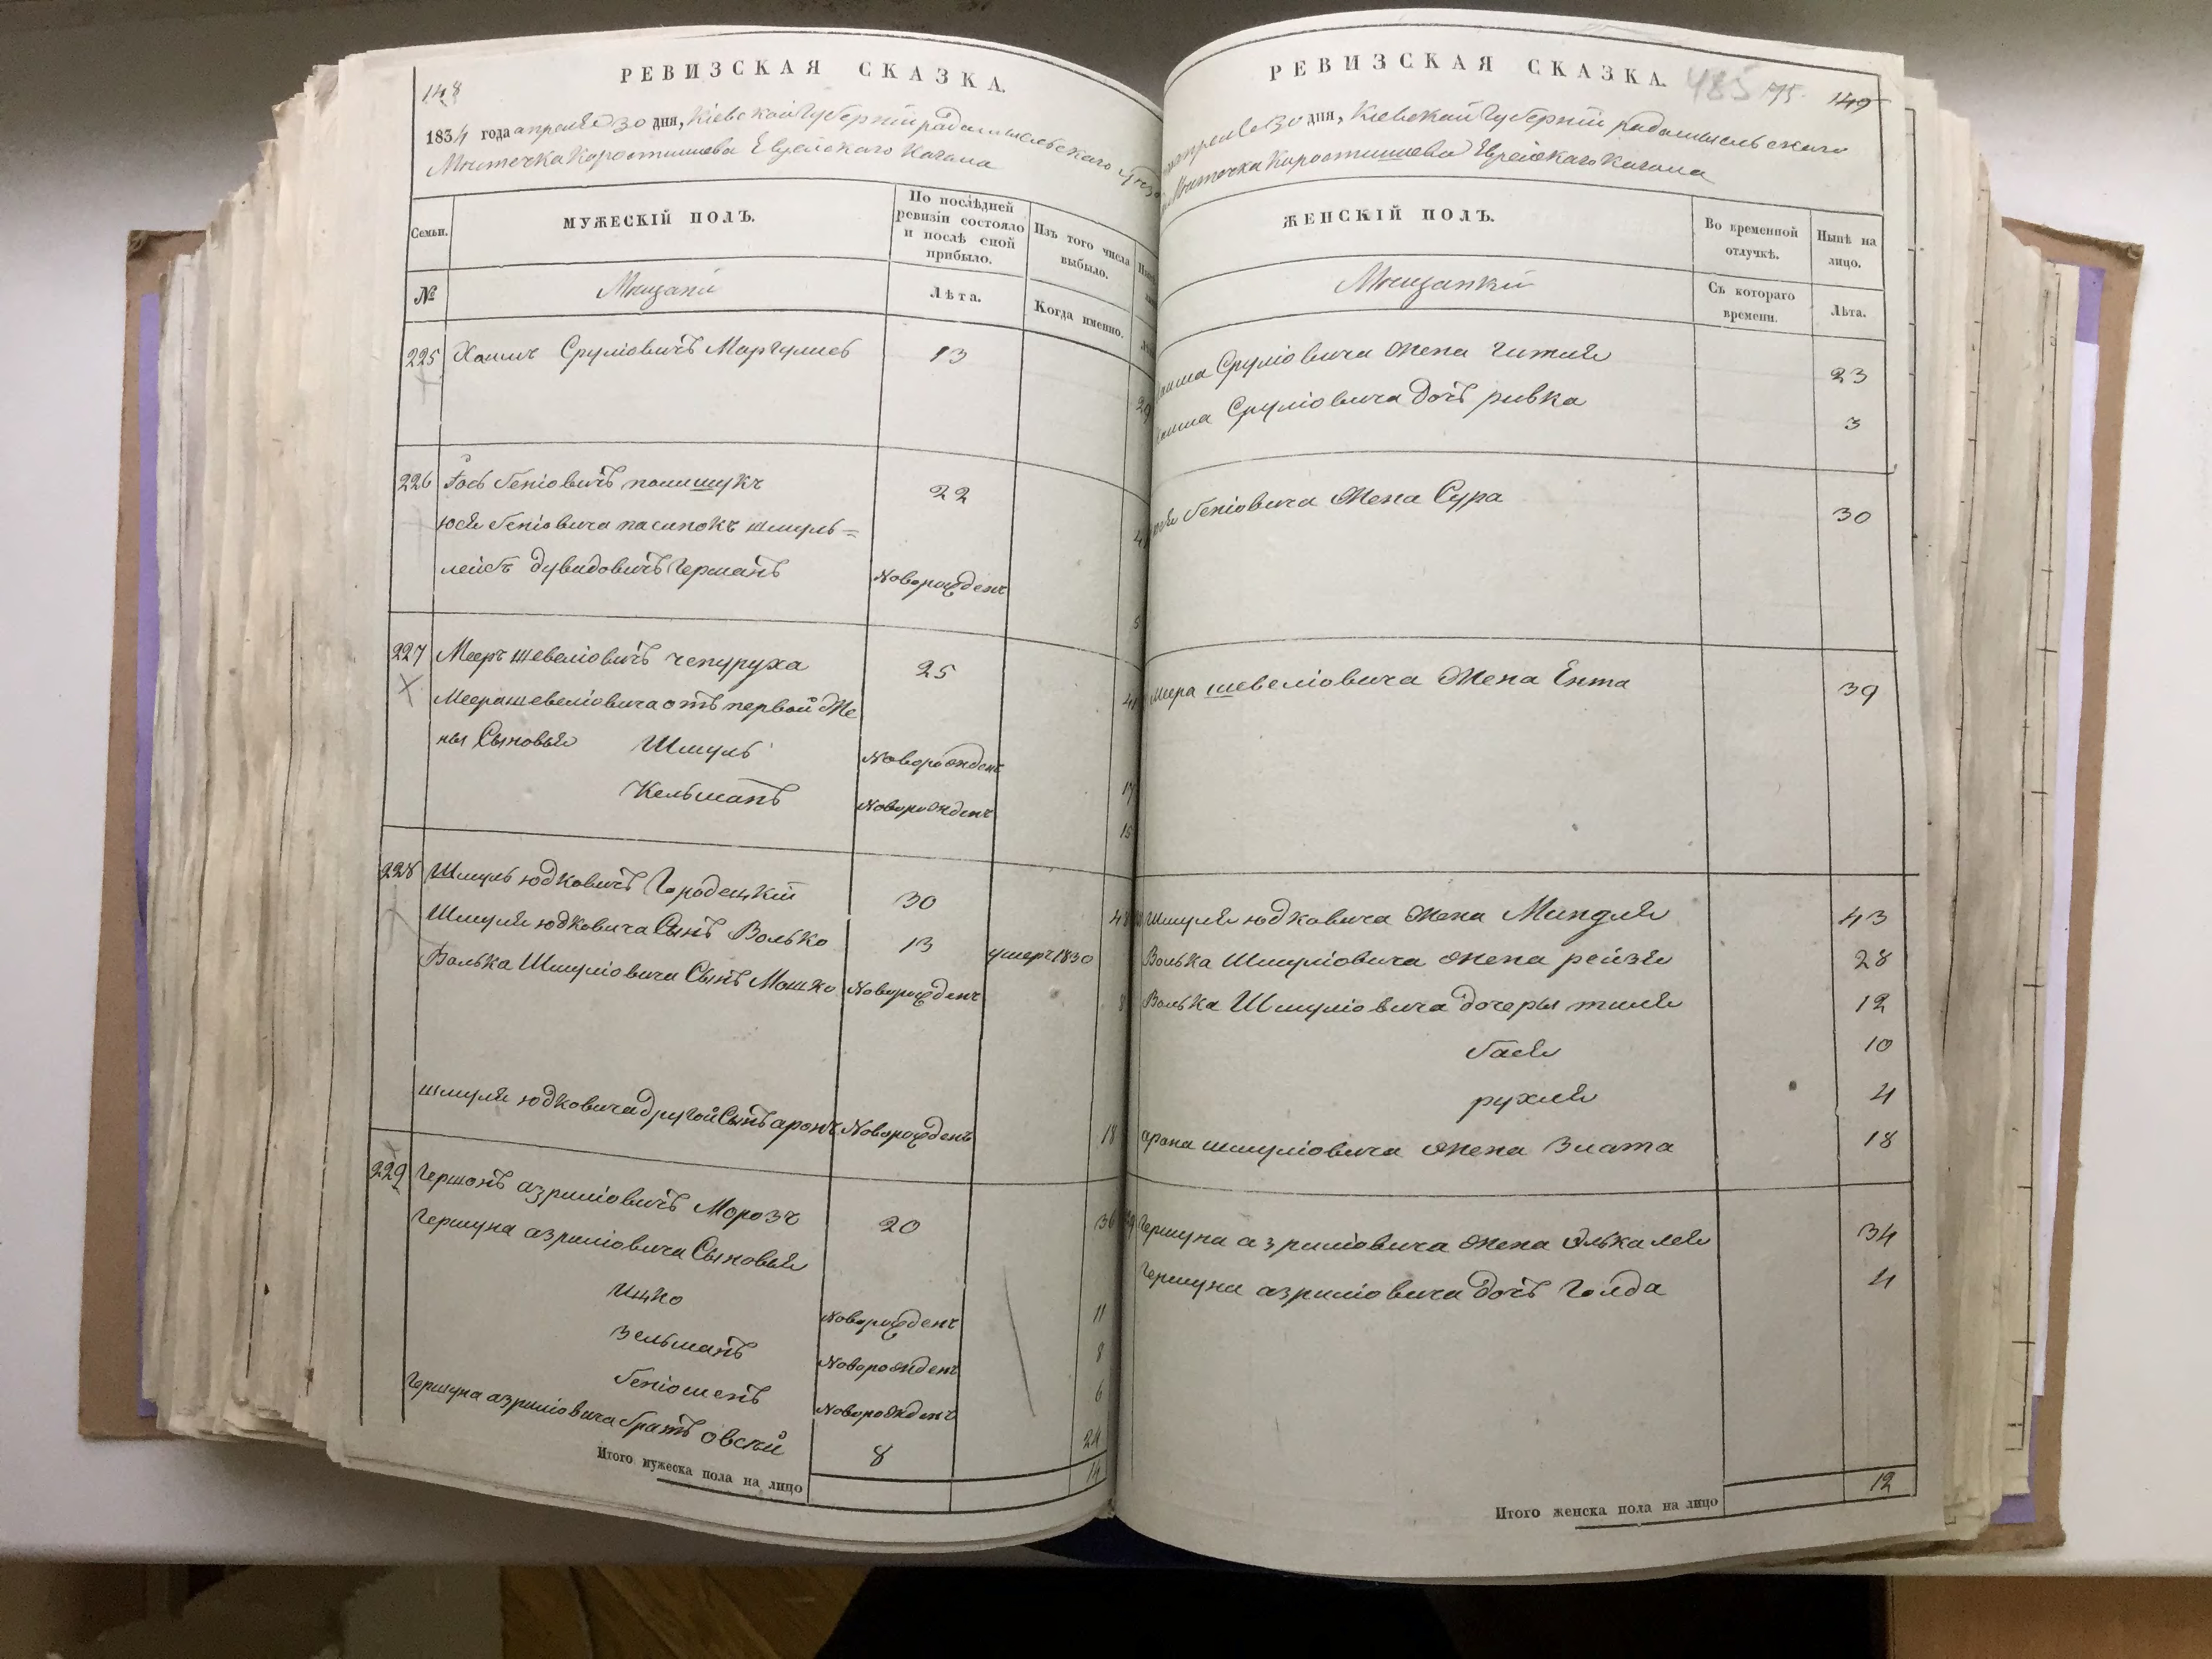 148
РЕВИЗСКАЯ СКАЗКА.
1834 года апреля 30 дня, Кіевской Губерніи радомысльского
Мѣстечка Коростишева Еврейского Кагала
Семьи.
МУЖЕСКІЙ ПОЛЪ.
По послѣдней ревизіи состояло и послѣ оной прибыло.
Изъ того числа выбыло.
№
Мещани
Лѣта.
Когда именно.
225 Хаимъ Сруліовичъ Маргулисъ 13
226 Іось беніовичъ полищукъ 22
юся беніовича пасинокъ шмуль=
лейбъ дувидовичъ Германъ Новорожденъ
227 Мееръ шевеліовичъ чепуруха 25
Меера шевеліовича отъ первой Же
ны Сыновья Шмуль Новорожденъ
Кельманъ Новорожденъ
15
228 Шмуль юдковичъ Городецкій 30 48
Шмуля юдковича Сынъ Волько 13 умеръ 1830
Волька Шмуліовича Сынъ Мошко Новорожденъ 8
шмуля юдковича другой Сынъ аронъ Новорожденъ 18
229 Гершонъ азриліовичъ Морозъ 20 36
Гершуна азриліовича Сыновья
ицко Новорожденъ 11
Зельманъ Новорожденъ 8
беніоменъ Новорожденъ 6
Гершуна азриліовича братъ овсій 8 24
Итого мужеска пола на лицо 14
РЕВИЗСКАЯ СКАЗКА.
485 75. 149
апреля 30 дня, Кіевской Губерніи радомысльского
Мѣстечка Коростишева Еврейского Кагала
ЖЕНСКІЙ ПОЛЪ.
Во временной отлучкѣ.
Нынѣ на лицо.
Мещанки
Съ котораго времени.
Лѣта.
Хаима Сруліовича Жена Гитля 23
Хаима Сруліовича дочь ривка 3
юся беніовича Жена Сура 30
меера шевеліовича Жена Ента 39
Шмуля юдковича Жена Миндля 43
Волька Шмуліовича Жена рейзя 28
Волька Шмуліовича дочеры тиля 12
бася 10
рухля 4
арона шмуліовича Жена Злата 18
Гершуна азриліовича Жена Элькалея 34
Гершуна азриліовича дочь Голда 4
Итого женска пола на лицо 12